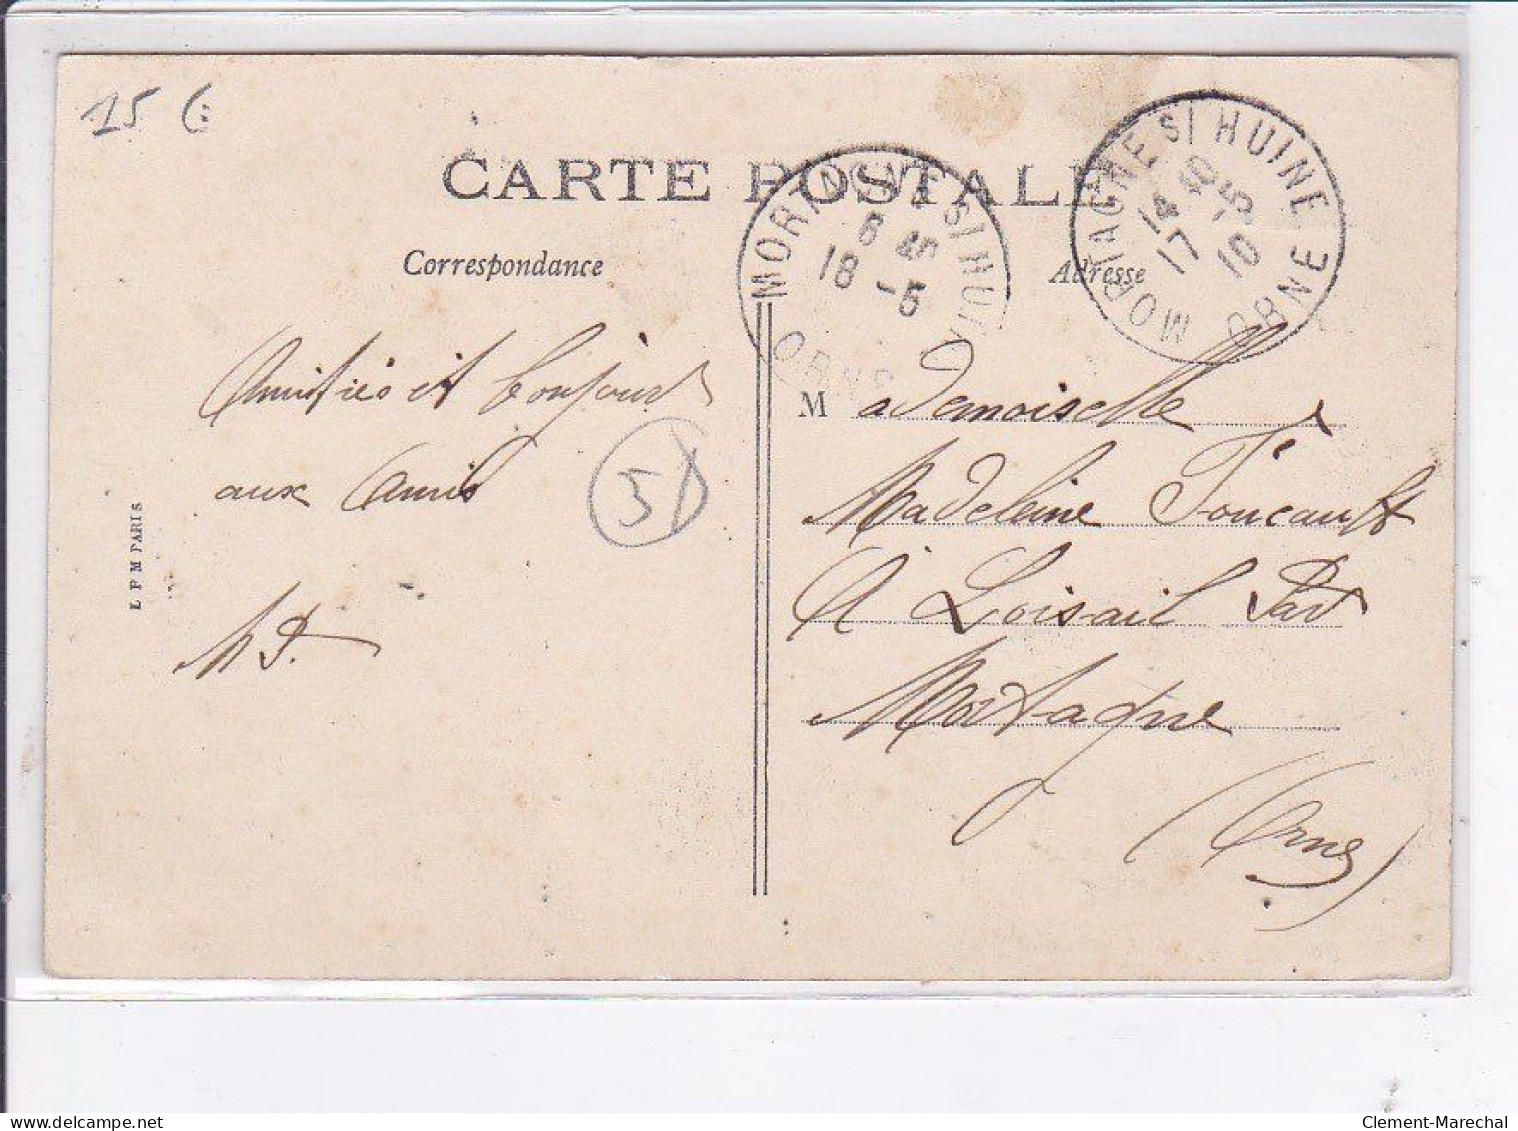 15 €
CARTE POSTALE
Correspondance
Adresse
MORTAGNE S/ HUINE
6 40
18 -5
ORNE
MORTAGNE S/ HUINE
14 40
17 -5
10
ORNE
Amitiés et bonjour
aux amis
M ademoiselle
Madeleine Foucault
A Loisail Par
Mortagne
(Orne)
L P M PARIS
Clement-Marechal